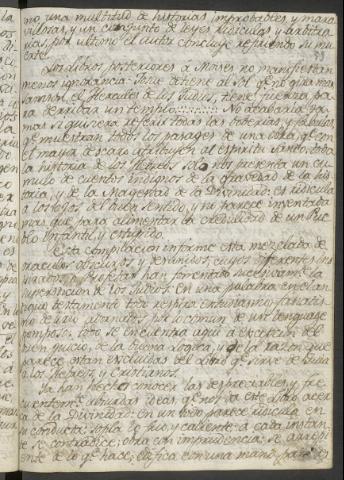 mo, una multitud de historias improbables, y mara
villosas, y un conjunto de leyes ridiculas y arbitra
rias, por ultimo el autor concluye refiriendo su mu
erte!
Los libros posteriores à Moises no manifiestan
menos ignorancia: Josue detiene al Sol
Samson, el Hercules de los Judios, tiene fuerza pa
ra derribar un templo No acabaria ja
mas si quisiera referir todas las boberias, y fabulas,
qe muestran todos los pasages de una obra, qe con
el mayor descaro atribuyen al espiritu Santo. toda
la historia de los Hebreos solo nos presenta un cu
mulo de cuentos indignos de la gravedad de la his
toria, y de la Magestad de la Divinidad: es ridicula
à los ojos del buen sentido, y no parece inventada
mas que para alimentar la credulidad de un Pue
blo Infantil, y estupido.
Esta compilacion infame esta mezclada de
oraculos obscuros, y desunidos, cuyos diferentes ins
pirados, o profetas han fomentado sucesivamte la
supersticion de los Judios en una palabra, en el an
tiguo testamento todo respira entusiasmo, fanatis
mo, delirio, adornados por lo comun de un lenguage
pomposo, todo se encuentra aqui à excepcion del
buen juicio, de la buena logica, y de la razon que
parece estan excluidas del libro qe sirve de Guia
à los Hebreos, y Cristianos.
Ya han hecho conocer las despreciables, y fre
cuentemte absurdas ideas qe nos da este libro acer
ca de la Divinidad: en un todo parece ridicula en
su conducta: sopla de frio, y caliente; à cada instan
te se contradice; obra con imprudencia; se arrepi
ente de lo qe hace; edifica con una mano, para des